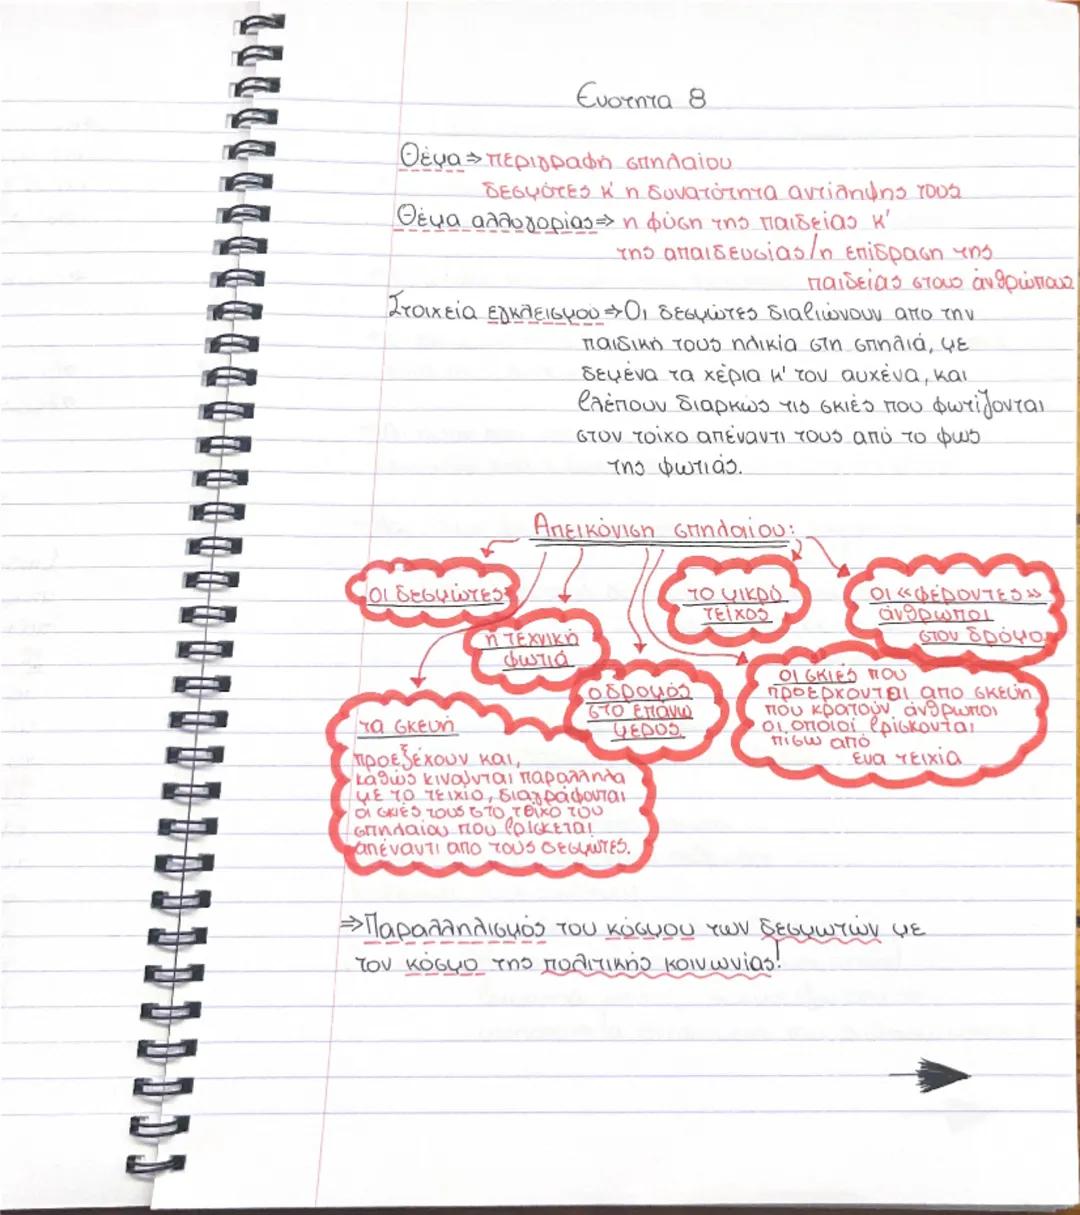 Ενότητα 8
Θέμα⇒ περιγραφή σπηλαίου
δεσμότες κ' η δυνατότητα αντίληψης τους
Θέμα αλλογορίας⇒ η φύση της παιδείας κ'
της απαιδευσίας/η επίδραση της
παιδείας στους άνθρώπους
Στοιχεία εγκλεισμού⇒Οι δεσμώτες διαβιώνουν απο την
παιδική τους ηλικία στη σπηλιά, με
δεμένα τα χέρια κ' τον αυχένα, και
βλέπουν διαρκώς τις σκιές που φωτίζονται
στον τοίχο απέναντι τους από το φως
της φωτιάς.
Απεικόνιση σπηλαίου:
οι δεσμώτες
το μικρό
τείχος
οι «φέροντες»
άνθρωποι
στον δρόμο
η τεχνική
φωτιά
ο δρομός
στο επάνω
μερος
οι σκιές που
προέρχονται απο σκεύη
που κρατούν άνθρωποι
οι οποίοι βρίσκονται
πίσω από
ενα τειχία
τα σκευή
προεξέχουν και,
καθώς κινούνται παράλληλα
με το τειχίο, διαγράφονται
οι σκιές τους στο τοίχο του
σπηλαίου που βρίσκεται
απέναντι απο τους δεσμώτες.
⇒Παραλληλισμός του κόσμου των δεσμωτών με
τον κόσμο της πολιτικής κοινωνίας!